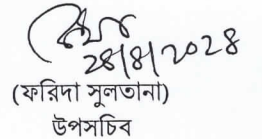 28/8/2028
(ফরিদা সুলতানা)
উপসচিব